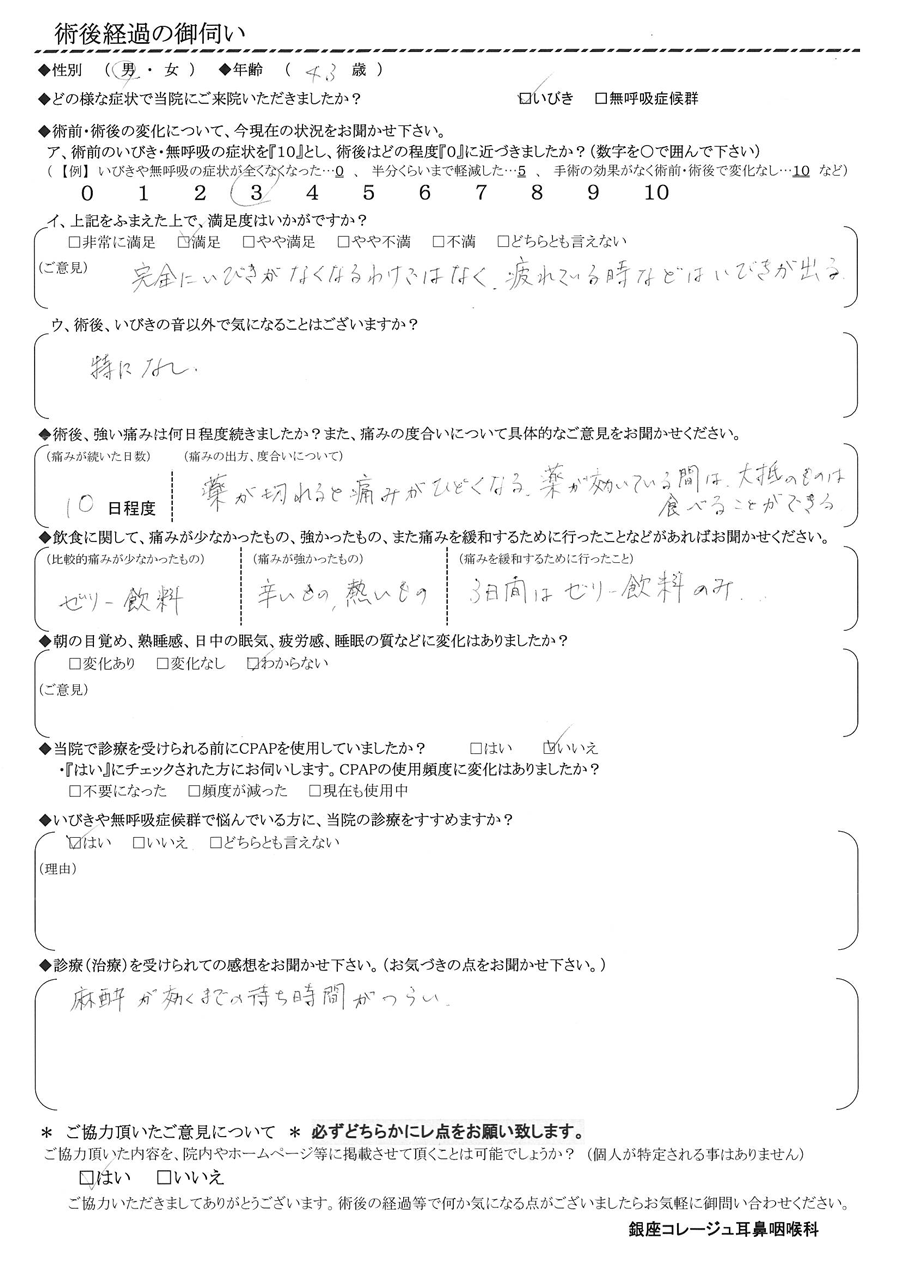 術後経過の御伺い
◆性別 （ 男 ・ 女 ） ◆年齢 （ 43 歳 ）
◆どの様な症状で当院にご来院いただきましたか？ ☑いびき □無呼吸症候群
◆術前・術後の変化について、今現在の状況をお聞かせ下さい。
ア、術前のいびき・無呼吸の症状を『10』とし、術後はどの程度『0』に近づきましたか？（数字を〇で囲んで下さい）
（ 【例】 いびきや無呼吸の症状が全くなくなった…0 、 半分くらいまで軽減した…5 、 手術の効果がなく術前・術後で変化なし…10 など）
0 1 2 3 4 5 6 7 8 9 10
イ、上記をふまえた上で、満足度はいかがですか？
□非常に満足 ☑満足 □やや満足 □やや不満 □不満 □どちらとも言えない
（ご意見） 完全にいびきがなくなるわけではなく、疲れている時などはいびきが出る。
ウ、術後、いびきの音以外で気になることはございますか？
特になし.
◆術後、強い痛みは何日程度続きましたか？また、痛みの度合いについて具体的なご意見をお聞かせください。
（痛みが続いた日数） （痛みの出方、度合いについて）
10 日程度 薬が切れると痛みがひどくなる。薬が効いている間は、大抵のものは
食べることができる
◆飲食に関して、痛みが少なかったもの、強かったもの、また痛みを緩和するために行ったことなどがあればお聞かせください。
（比較的痛みが少なかったもの） （痛みが強かったもの） （痛みを緩和するために行ったこと）
ゼリー飲料 辛いもの、熱いもの 3日間はゼリー飲料のみ...
◆朝の目覚め、熟睡感、日中の眠気、疲労感、睡眠の質などに変化はありましたか？
□変化あり □変化なし ☑わからない
（ご意見）
◆当院で診療を受けられる前にCPAPを使用していましたか？ □はい ☑いいえ
・『はい』にチェックされた方にお伺いします。CPAPの使用頻度に変化はありましたか？
□不要になった □頻度が減った □現在も使用中
◆いびきや無呼吸症候群で悩んでいる方に、当院の診療をすすめますか？
☑はい □いいえ □どちらとも言えない
（理由）
◆診療（治療）を受けられての感想をお聞かせ下さい。（お気づきの点をお聞かせ下さい。）
麻酔が効くまでの待ち時間がつらい.
＊ ご協力頂いたご意見について ＊ 必ずどちらかにレ点をお願い致します。
ご協力頂いた内容を、院内やホームページ等に掲載させて頂くことは可能でしょうか？ （個人が特定される事はありません）
☑はい □いいえ
ご協力いただきましてありがとうございます。術後の経過等で何か気になる点がございましたらお気軽に御問い合わせください。
銀座コレージュ耳鼻咽喉科